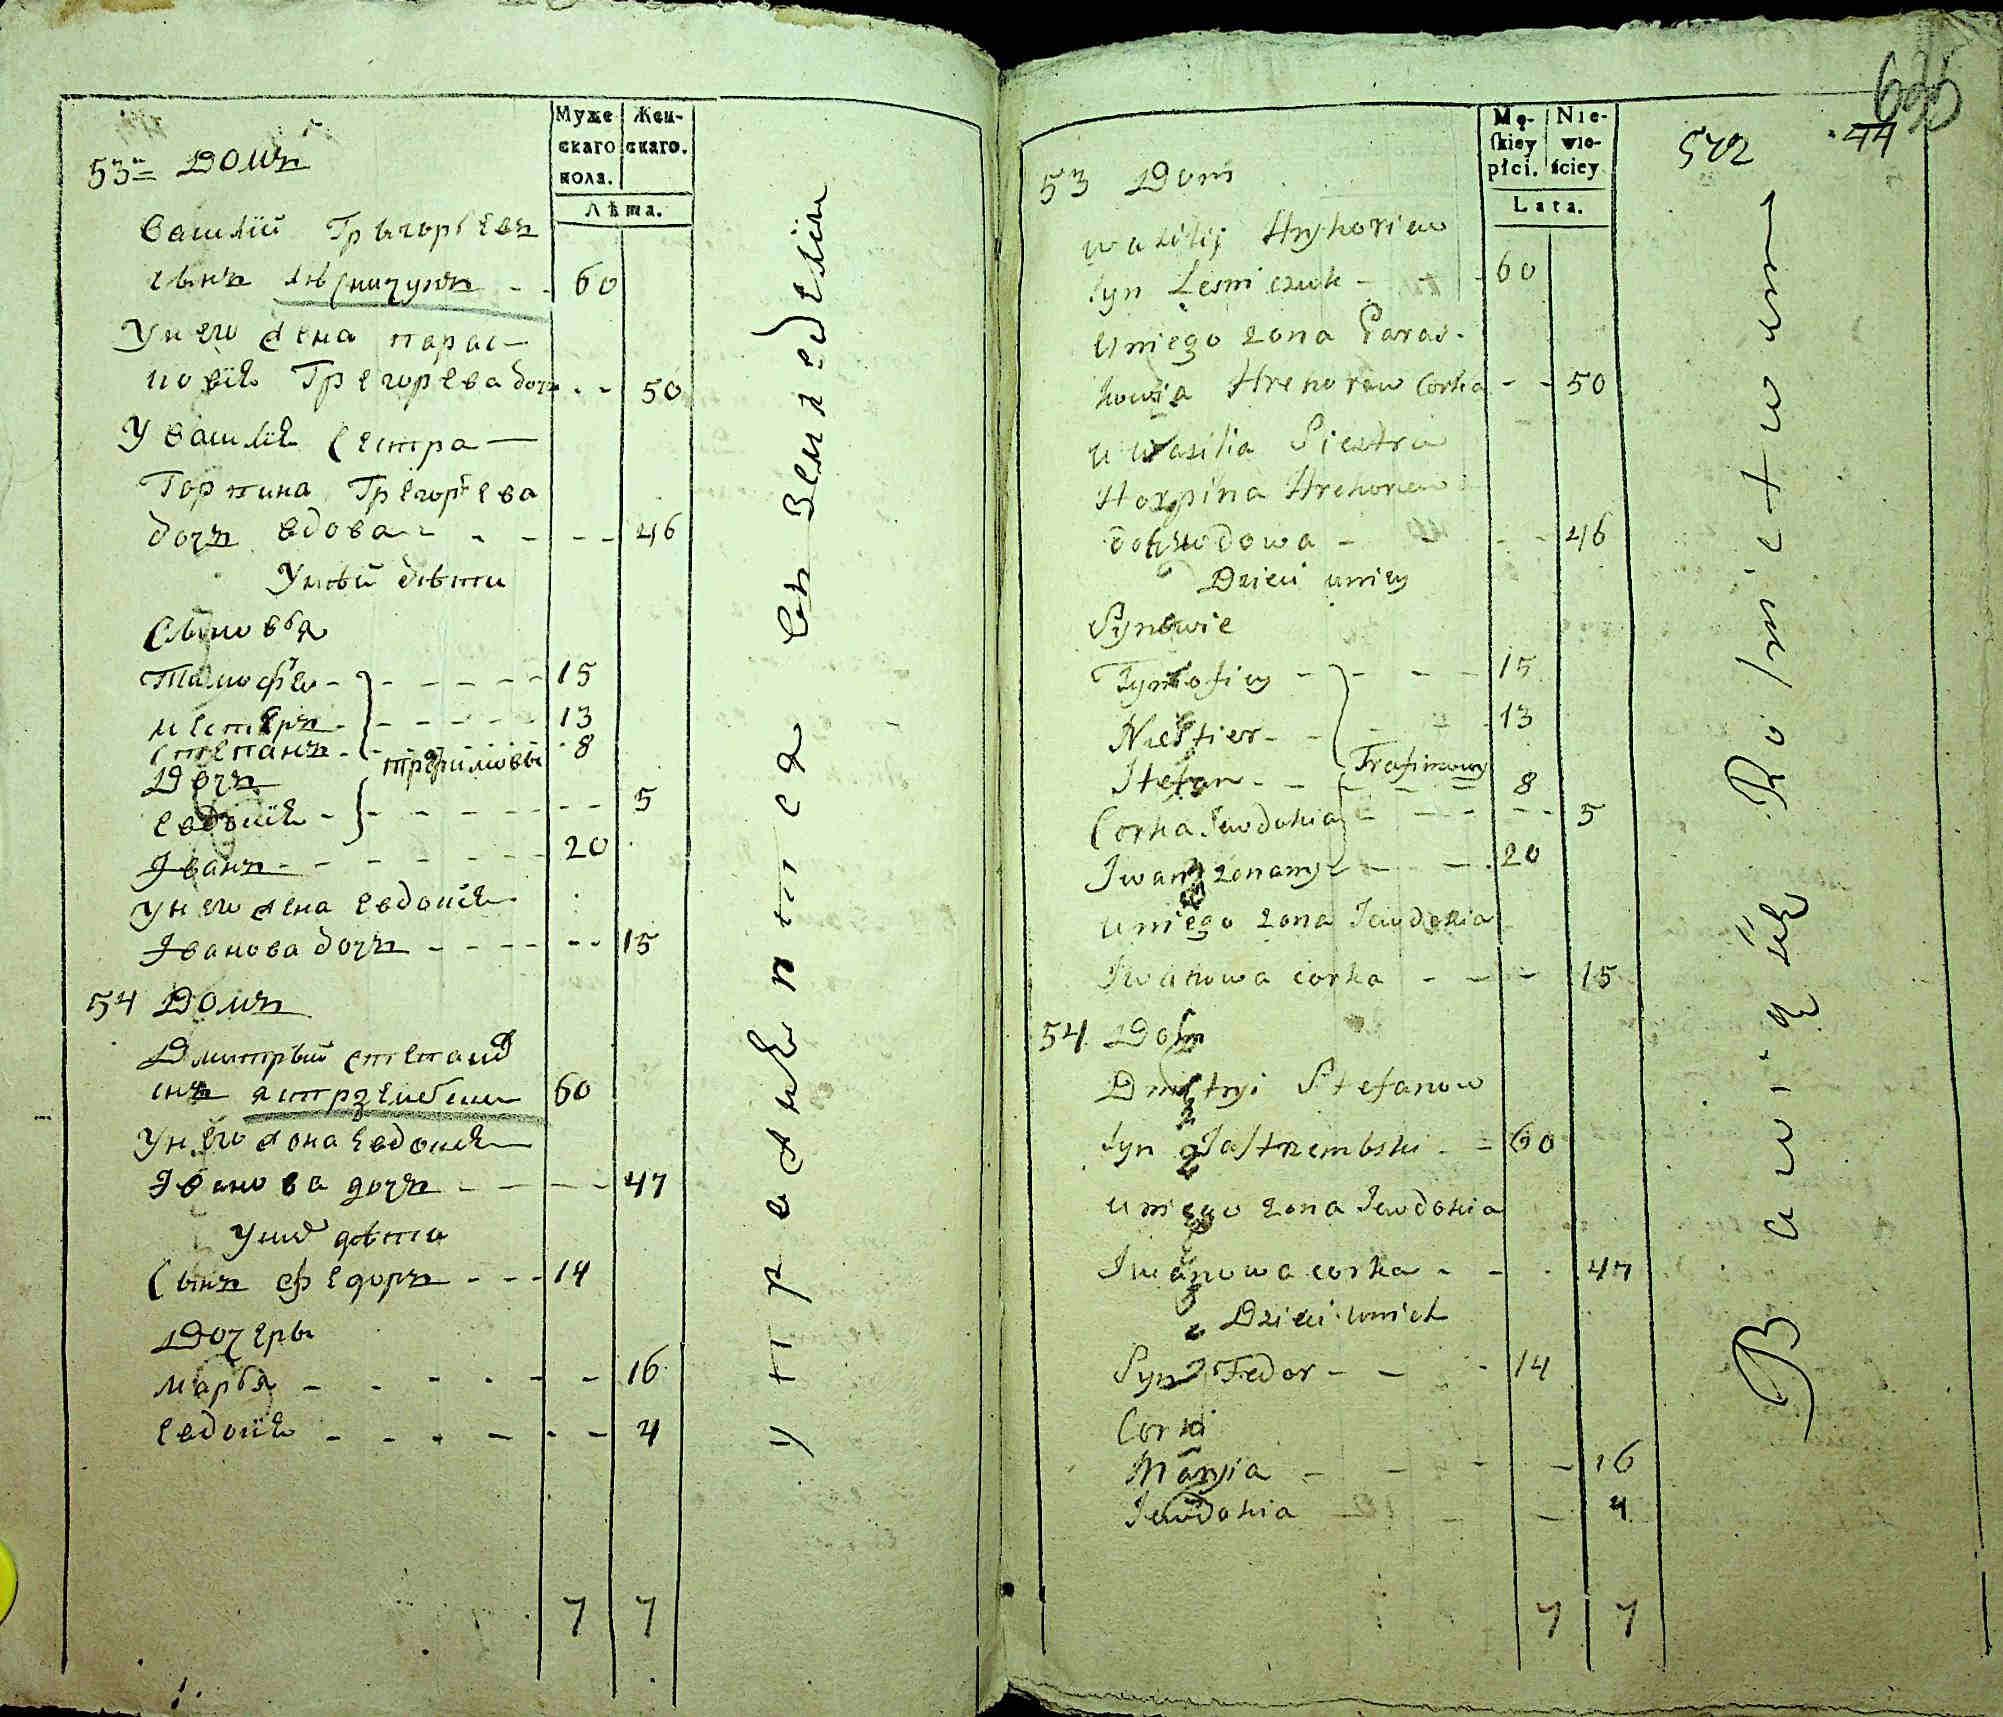 Муже Жен-
скаго скаго.
пола.
Лѣта.
53 Домъ
Василій Грыгорьевъ
сынъ лѣсничукъ - - 60
У него жена парас-
ковія Грегорева дочъ - - 50
У Василія Сестра —
Горпина Грегорьева
дочъ вдова - - - - 46
У ней дѣти
Сыновья
Тимофей - - - - - 15
нестеръ - - - - - 13
степанъ - - 8
трофимовы
Дочъ
Евдокія - - - - - - 5
Іванъ - - - - - - 20
У него жена Евдокія
Іванова дочъ - - - - - - 15
54 Домъ
Дмитрый степанов
снъ ястрзембски 60
У него жона Евдокія
Іванова дочъ - - - - 47
У них дѣти
Сынъ Федоръ - - - 14
Дочеры
Марья - - - - - - 16
Евдокія - - - - - - 4
7 7
упражняется въ Земледелии
635
572 44
Mę- Nie-
skiey wie-
płci. ściey
Lata.
53 Dom
Wasilij Hryhoriew
syn Lesniczuk - - 60
U niego zona Paras-
kowia Hrehorew Corka - - 50
u Wasilia Siestra
Horpina Hrehorew
docz wdowa - - - - 46
Dzieci u niey
Synowie
Tymofiey - - - - 15
Niestier - - - 13
Stefan - - - - - 8
Trofimowy
Corka Jewdokia - - - - 5
Iwan zonany - - - 20
U niego zona Jewdokia
Iwanowa corka - - - 15
54 Dom
Dmitryi Stefanow
syn Jastrzembski - - 60
U niego zona Jewdokia
Iwanowa corka - - - 47
Dzieci u nich
Syn Fedor - - - 14
Corki
Maryia - - - - 16
Jewdokia - - - 4
7 7
Bawi się Rolnictwem